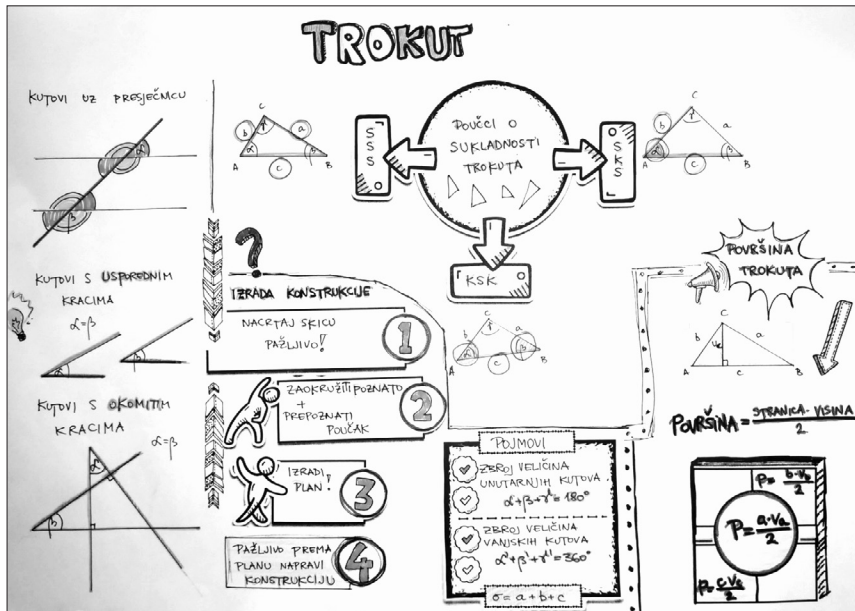 TROKUT
KUTOVI UZ PRESJEČNICU
α
β
KUTOVI S USPOREDNIM
KRACIMA
α=β
α
β
KUTOVI S OKOMITIM
KRACIMA
α=β
α
β
C
b
γ
a
α
β
A
c
B
SSS
POUČCI O
SUKLADNOSTI
TROKUTA
SKS
C
b
γ
a
α
β
A
c
B
KSK
C
b
γ
a
α
β
A
c
B
?
IZRADA KONSTRUKCIJE
NACRTAJ SKICU
PAŽLJIVO!
1
ZAOKRUŽITI POZNATO
+
PREPOZNATI
POUČAK
2
IZRADI
PLAN!
3
PAŽLJIVO PREMA
PLANU NAPRAVI
KONSTRUKCIJU
4
POJMOVI
ZBROJ VELIČINA
UNUTARNJIH KUTOVA
α+β+γ=180°
ZBROJ VELIČINA
VANJSKIH KUTOVA
α'+β'+γ'=360°
σ=a+b+c
POVRŠINA
TROKUTA
C
b
a
A
c
B
POVRŠINA = STRANICA · VISINA / 2
P = b·v_b / 2
P = a·v_a / 2